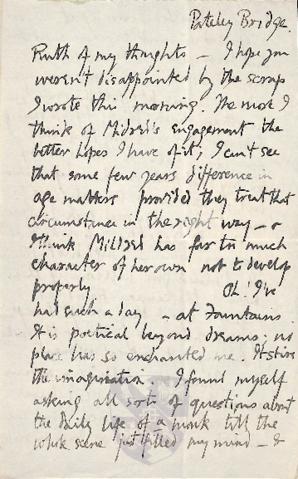 Pateley Bridge.
Ruth of my thoughts – I hope you
weren't disappointed by the scrap
I wrote this morning. The more I
think of Mildred's engagement the
better hopes I have of it; I can't see
that some few years difference in
age matters provided they treat that
circumstance in the right way – &
I think Mildred has far too much
character of her own not to develop
properly. Oh! I've
had such a day – at Fountains.
It is poetical beyond dreams; no
place has so enchanted me. It stirs
the imagination. I found myself
asking all sorts of questions about
the daily life of a monk till the
whole scene just filled my mind – &